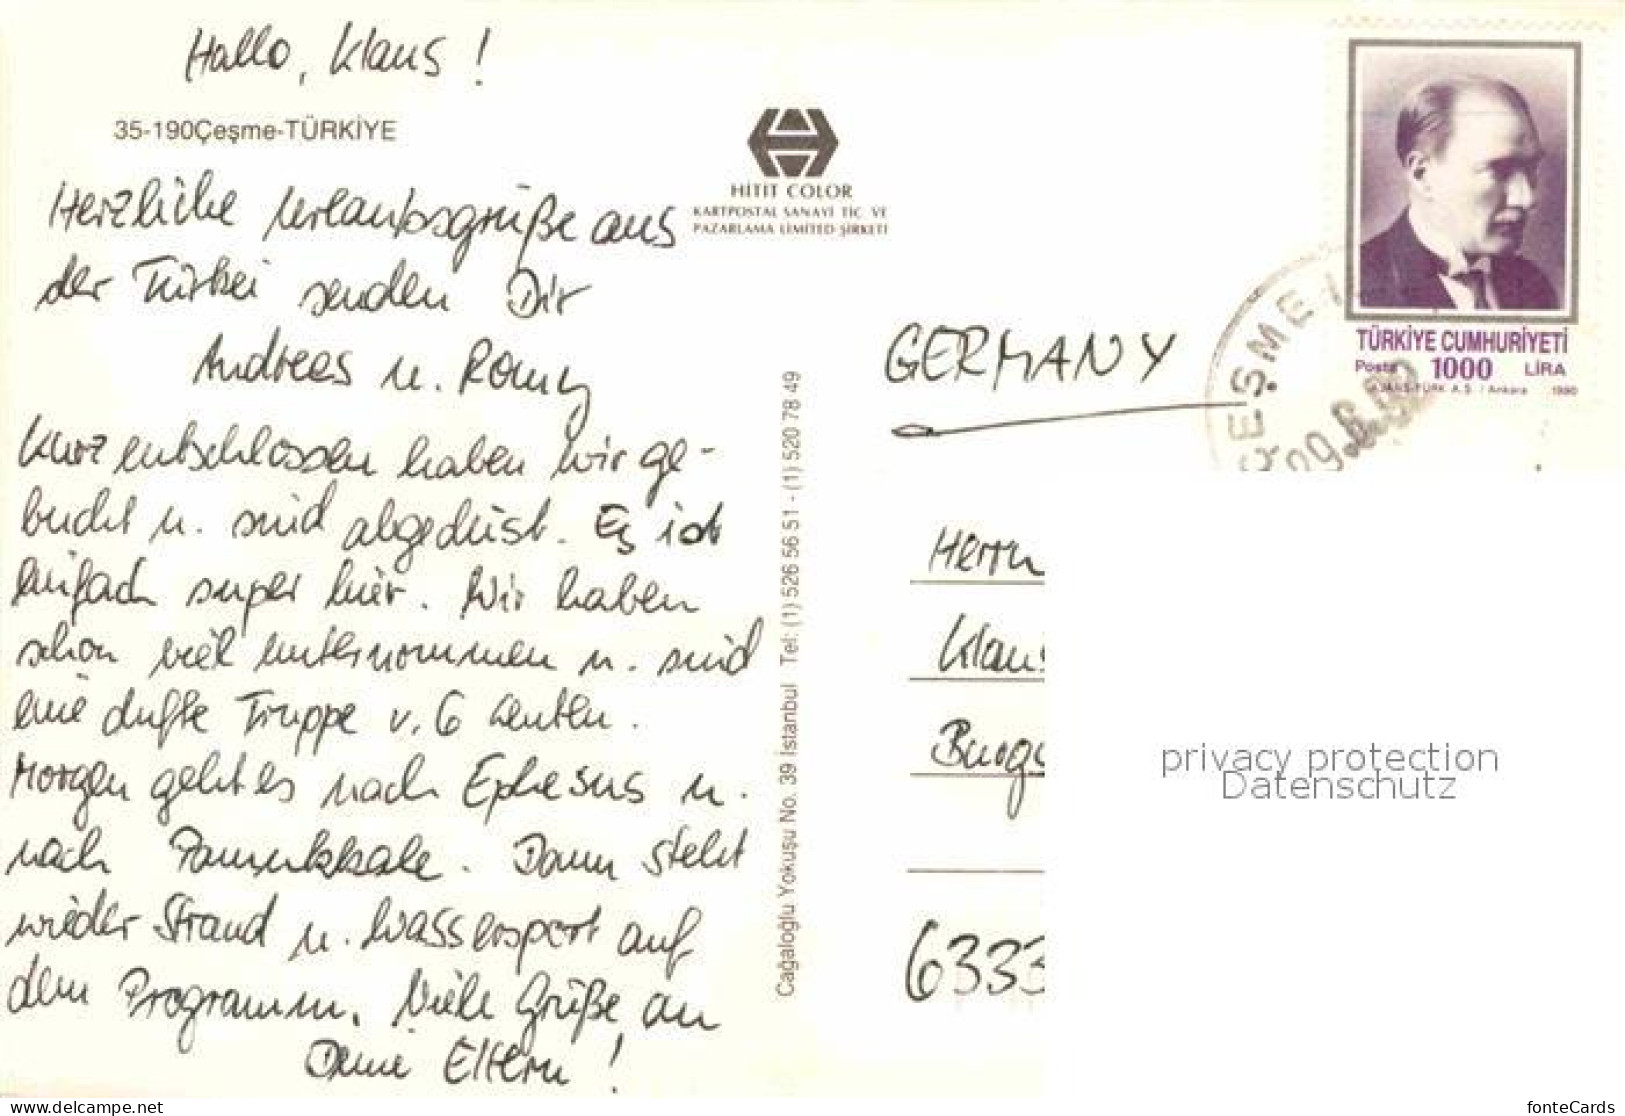 Hallo, Klaus !
35-190Çeşme-TÜRKİYE
HİTİT COLOR
KARTPOSTAL SANAYİ TİC VE
PAZARLAMA LİMİTED ŞİRKETİ
Herzliche Urlaubsgrüße aus
der Türkei senden Dir
Andreas u. Romy
Kurz entschlossen haben wir ge-
bucht u. sind abgedüst. Es ist
einfach super hier. Wir haben
schon viel unternommen u. sind
eine dufte Truppe v. 6 Leuten.
Morgen geht es nach Ephesus u.
nach Pamukkale. Dann steht
wieder Strand u. Wassersport auf
dem Programm. Viele Grüße an
Deine Eltern !
Cağaloğlu Yokuşu No. 39 İstanbul Tel: (1) 526 56 51 - (1) 520 78 49
TÜRKİYE CUMHURİYETİ
Posta 1000 LİRA
AJANS-TÜRK A.Ş. / Ankara 1990
ÇEŞME
GERMANY
Herrn
Klaus
Burg
6333
privacy protection
Datenschutz
https://www.delcampe.net/en_GB/collectibles/
fonteCards